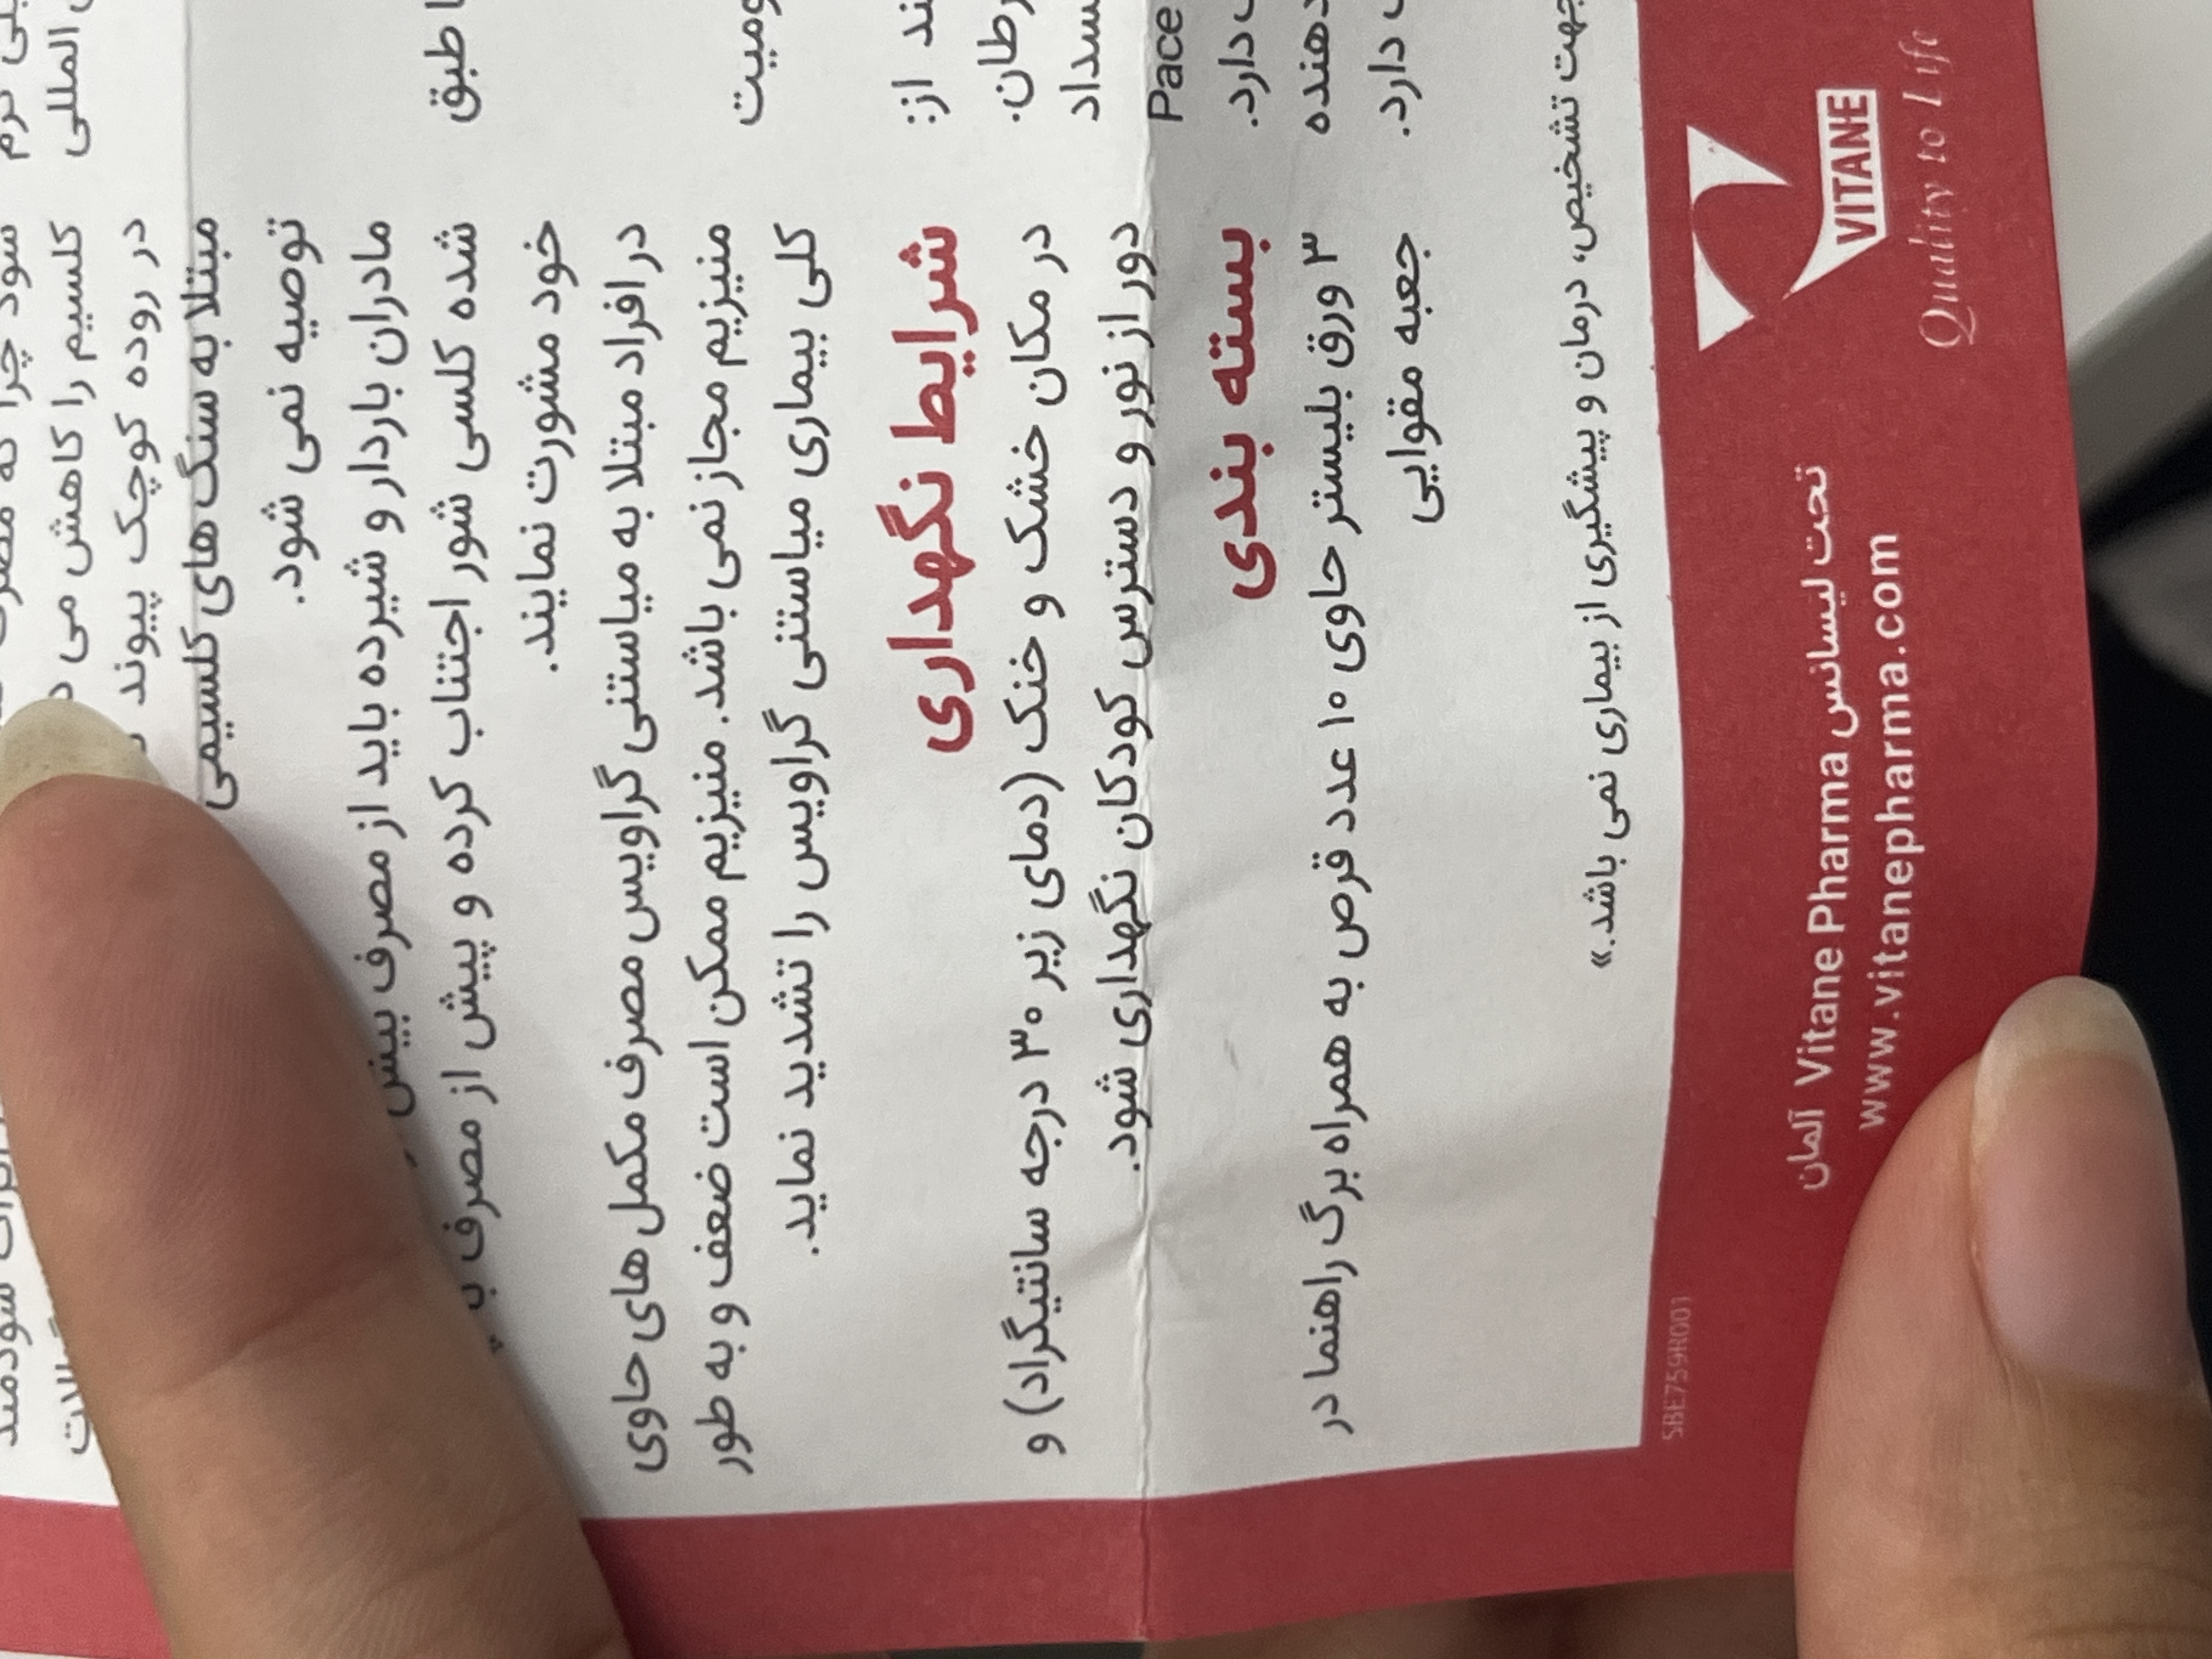 المللی
ا طبق
ومیت
ند از:
رطان.
نسداد
Pace
دارد.
دهنده
دارد.
کلسیم را کاهش می
در روده کوچک پیوند
مبتلا به سنگ های کلسیمی
توصیه نمی شود.
مادران باردار و شیرده باید از مصرف بیش
شده کلسی شور اجتناب کرده و پیش از مصرف
خود مشورت نمایند.
در افراد مبتلا به میاستنی گراویس مصرف مکمل های حاوی
منیزیم مجاز نمی باشد. منیزیم ممکن است ضعف و به طور
کلی بیماری میاستنی گراویس را تشدید نماید.
شرایط نگهداری
در مکان خشک و خنک (دمای زیر ۳۰ درجه سانتیگراد) و
دور از نور و دسترس کودکان نگهداری شود.
بسته بندی
۳ ورق بلیستر حاوی ۱۰ عدد قرص به همراه برگ راهنما در
جعبه مقوایی
جهت تشخیص، درمان و پیشگیری از بیماری نمی باشد.»
VITANE
Quality to Life
تحت لیسانس Vitane Pharma آلمان
www.vitanepharma.com
SBE759R001